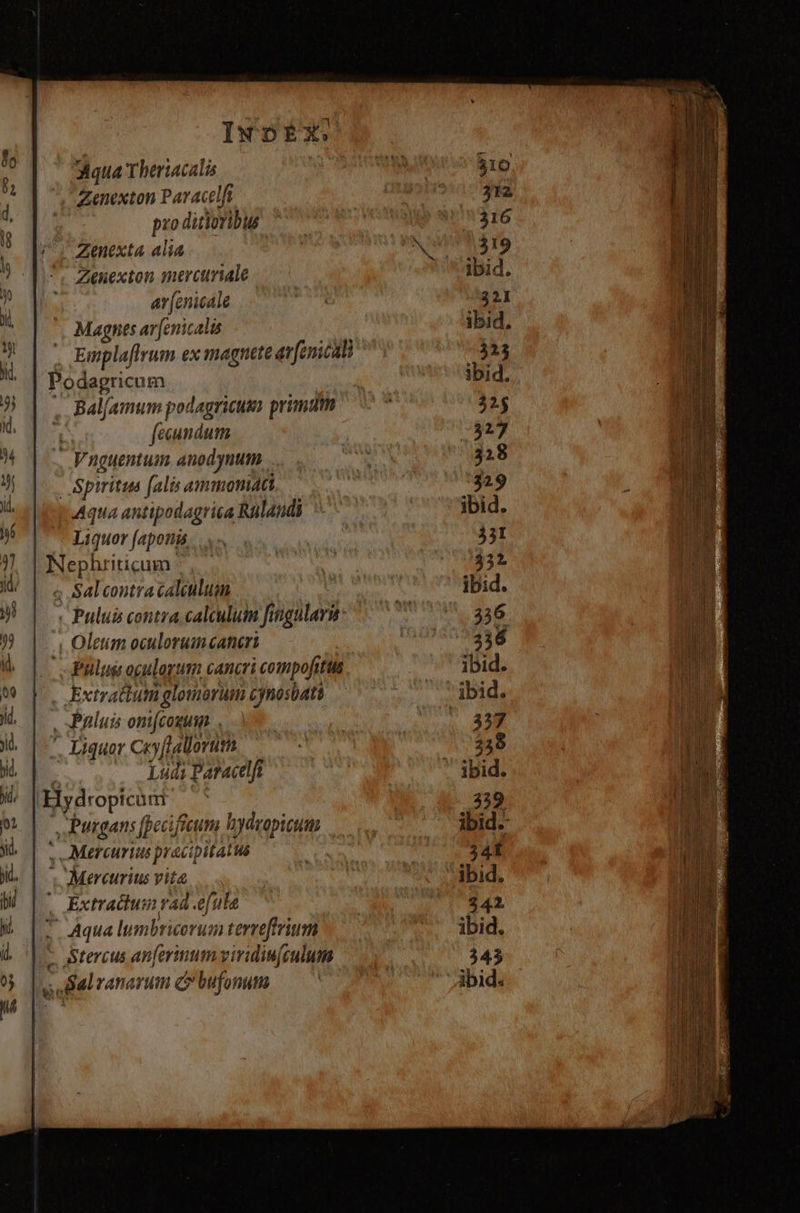 INDEX.
Aqua Theriacalis 310
Zenexton Paracelſi 312
pro ditioribus 316
Zenexta alia 319
Zenexton mercuriale ibid.
arſenicale 321
Magnes arſenicalis ibid.
Emplaſtrum ex magnete arſenicali 323
Podagricum ibid.
Balſamum podagricum primum 325
ſecundum 327
Vnguentum anodynum 328
Spiritus ſalis ammoniaci 329
Aqua antipodagrica Rulandi ibid.
Liquor ſaponis 331
Nephriticum 332
Sal contra calculum ibid.
Puluis contra calculum ſingularis 336
Oleum oculorum cancri 336
Puluis oculorum cancri compoſitus ibid.
Extractum glomorum cynosbati ibid.
Puluis oniſcorum 337
Liquor Cryſtallorum 338
Ludi Paracelſi ibid.
Hydropicum 339
Purgans ſpecificum hydropicum ibid.
Mercurius præcipitatus 341
Mercurius vitæ ibid.
Extractum rad. eſulæ 342
Aqua lumbricorum terreſtrium ibid.
Stercus anſerinum viridiuſculum 343
Sal ranarum & bufonum ibid.